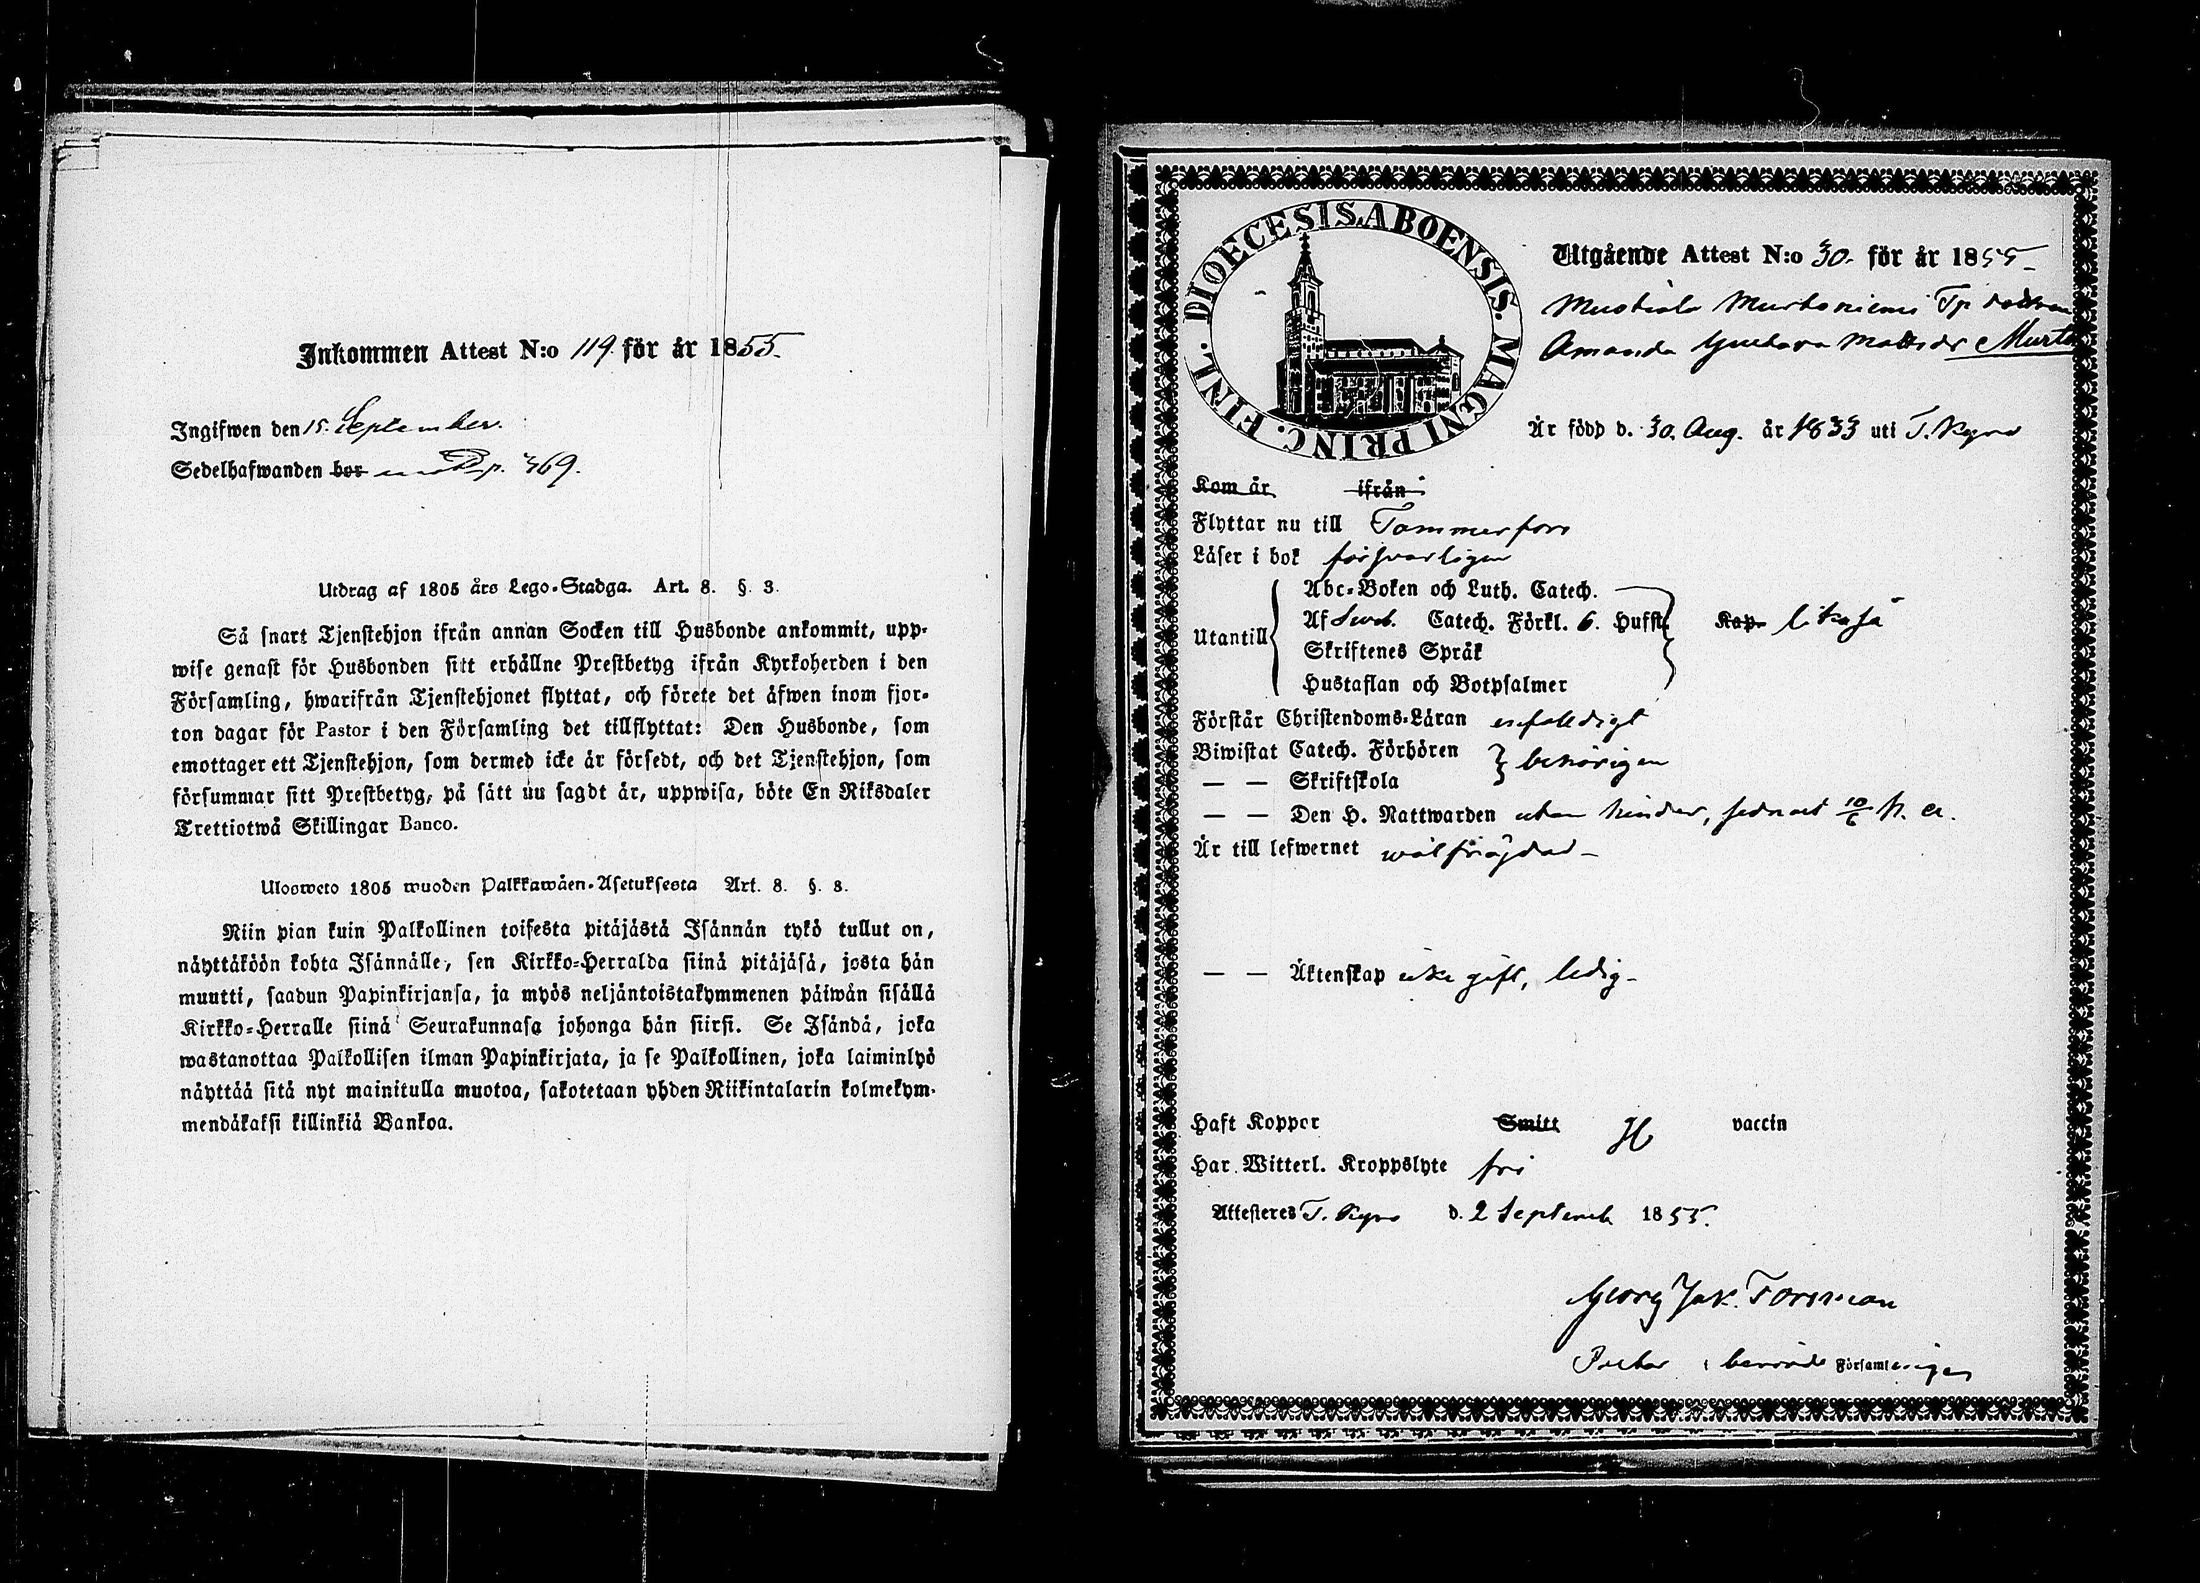 Inkommen Attest N:o 119. för år 1855.
Ingifwen den 15. September.
Sedelhafwanden bor p. 469.
Utdrag af 1805 års Lego-Stadga. Art. 8. §. 3.
Så snart Tjenstehjon ifrån annan Socken till Husbonde ankommit, upp-
wise genast för Husbonden sitt erhållne Prestbetyg ifrån Kyrkoherden i den
Församling, hwarifrån Tjenstehjonet flyttat, och förete det äfwen inom fjor-
ton dagar för Pastor i den Församling det tillflyttat: Den Husbonde, som
emottager ett Tjenstehjon, som dermed icke är försedt, och det Tjenstehjon, som
försummar sitt Prestbetyg, på sätt nu sagdt är, uppwisa, böte En Riksdaler
Trettiotwå Skillingar Banco.
Ulosweto 1805 wuoden Palkkawäen-Asetuksesta Art. 8. §. 3.
Niin pian kuin Palkollinen toisesta pitäjästä Isännän tykö tullut on,
näyttäköön kohta Isännälle, sen Kirkko-Herralda siinä pitäjäsä, josta hän
muutti, saadun Papinkirjansa, ja myös neljäntoistakymmenen päiwän sisällä
Kirkko-Herralle siinä Seurakunnasa johonga hän siirsi. Se Isändä, joka
wastanottaa Palkollisen ilman Papinkirjata, ja se Palkollinen, joka laiminlyö
näyttää sitä nyt mainitulla muotoa, sakotetaan yhden Riikintalarin kolmekym-
mendäkaksi killinkiä Bankoa.
DIOECESIS. ABOENSIS. MAGNI PRINC. FINL.
Utgående Attest N:o 30. för år 1855
Mustiala Murtoniemi Tp dottren
Amanda Gustava Mattsdr Murto
Är född d. 30. Aug. år 1833 uti T. Kyro
Kom år ifrån
Flyttar nu till Tammerfors
Läser i bok försvarligen
Utantill
Abc-Boken och Luth. Catech.
Af Sweb. Catech. Förkl. 6. Hufst. Kap. likaså
Skriftenes Språk
Hustaflan och Botpsalmer
Förstår Christendoms-Läran enfaldigt
Biwistat Catech. Förhören
— — Skriftskola behörigen
— — Den H. Nattwarden utan hinder, sednast 10/6 h. a.
Är till lefwernet wälfrägdad
— — Äktenskap icke gift, ledig
Haft Koppor Smitt vaccin
Har Witterl. Kroppslyte fri
Attesteres T. Kyro d. 2 Septemb 1855.
Georg Jak. Forsman
i berörde Församlingen